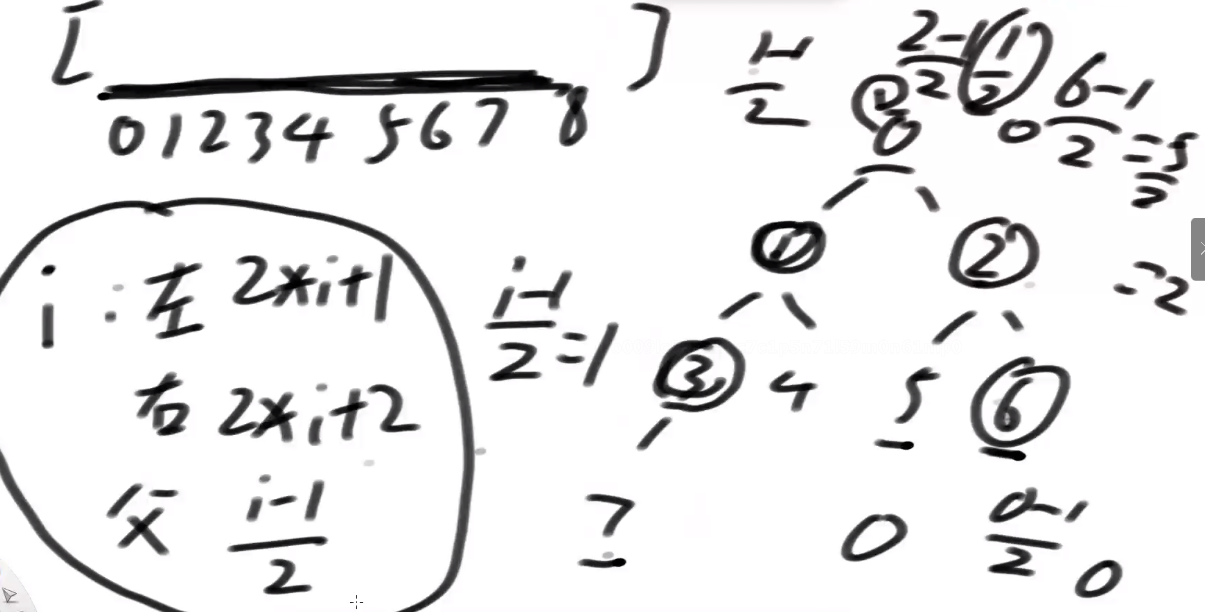 [ ]
0 1 2 3 4 5 6 7 8
i : 左 2×i+1
右 2×i+2
父 i-1/2
i-1/2 =1
1-1/2
2-1/2
1/2
0
6-1/2 =5/2
=2
0
1 2
3 4 5 6
7
0
0-1/2
0